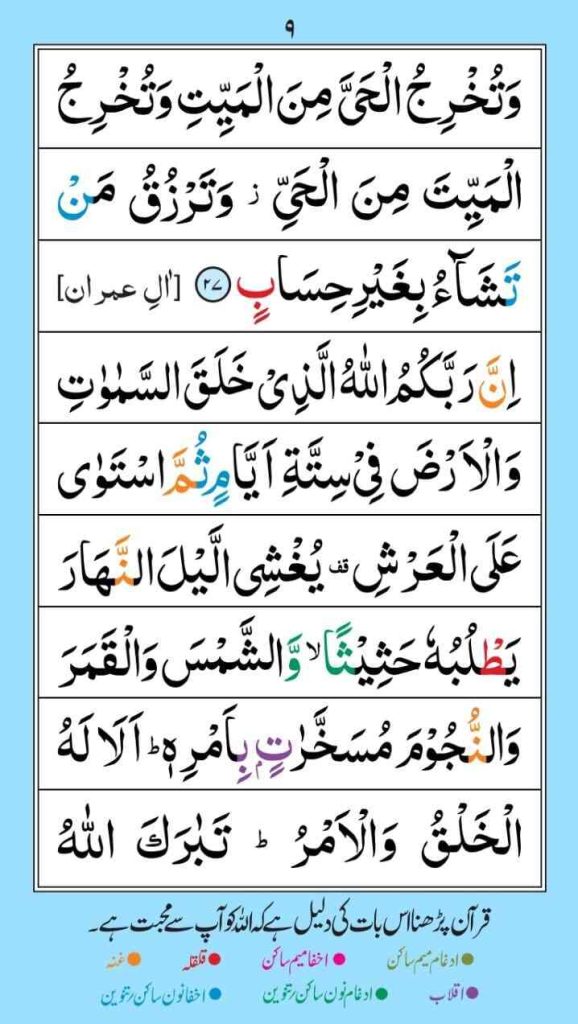 ۹
وَتُخْرِجُ الْحَیَّ مِنَ الْمَیِّتِ وَتُخْرِجُ
الْمَیِّتَ مِنَ الْحَیِّ ز وَتَرْزُقُ مَنْ
تَشَآءُ بِغَیْرِ حِسَابٍ ۲۷ [اٰلِ عمران]
اِنَّ رَبَّكُمُ اللّٰهُ الَّذِیْ خَلَقَ السَّمٰوٰتِ
وَالْاَرْضَ فِیْ سِتَّةِ اَیَّامٍ ثُمَّ اسْتَوٰی
عَلَی الْعَرْشِ قف یُغْشِی الَّیْلَ النَّهَارَ
یَطْلُبُهٗ حَثِیْثًا لا وَّالشَّمْسَ وَالْقَمَرَ
وَالنُّجُوْمَ مُسَخَّرٰتٍۭ بِاَمْرِهٖ ط اَلَا لَهُ
الْخَلْقُ وَالْاَمْرُ ط تَبٰرَكَ اللّٰهُ
قرآن پڑھنا اس بات کی دلیل ہے کہ اللہ کو آپ سے محبت ہے۔
ادغام میم ساکن اخفا میم ساکن قلقلہ غنہ
اقلاب ادغام نون ساکن/تنوین اخفا نون ساکن/تنوین